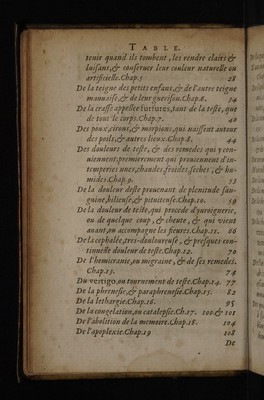 TABLE.
tenir quand ils tombent, les rendre clairs &
luisans, & conseruer leur couleur naturelle ou
artificielle. Chap.5 28
De la teigne des petits enfans, & de l'autre teigne
mauuaise, & de leur guerison. Chap.6. 34
De la crasse appellee furfures, tant de la teste, que
de tout le corps. Chap.7. 40
Des poux, cirons, & morpions, qui naissent autour
des poils, & autres lieux. Chap.8. 44
Des douleurs de teste, & des remedes qui y con-
uiennent: premierement qui prouiennent d'in-
temperies unes, chaudes, froides, seches, & hu-
mides. Chap.9. 53
De la douleur de teste prouenant de plenitude san-
guine, bilieuse, & pituiteuse. Chap.10. 59
De la douleur de teste, qui procede d'yurognerie,
ou de quelque coup, & cheute, & qui vient
auant, ou accompagne les fieures. Chap.11. 66
De la cephalée, tres-douloureuse, & presques con-
tinuelle douleur de teste. Chap.12. 70
De l'hemicranie, ou migraine, & de ses remedes.
Chap.13. 74
Du vertigo, ou tournement de teste. Chap.14. 77
De la phrenesie, & paraphrenesie. Chap.15. 82
De la lethargie. Chap.16. 95
De la congelation, ou catalepsie. Ch.17. 100 & 101
De l'abolition de la memoire. Chap.18. 104
De l'apoplexie. Chap.19 108
De